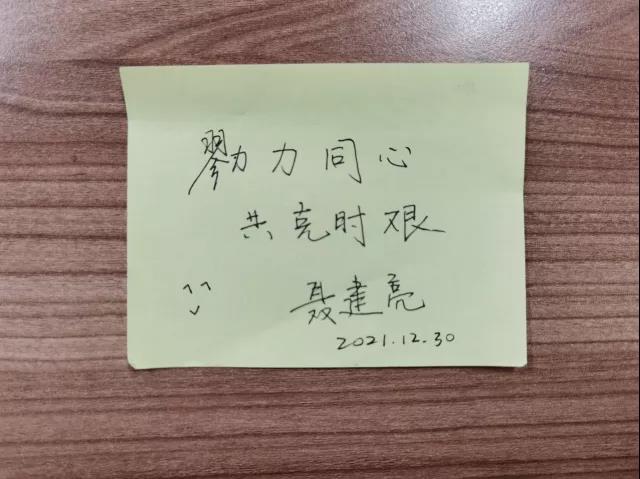 勠力同心
共克时艰
聂建亮
2021.12.30